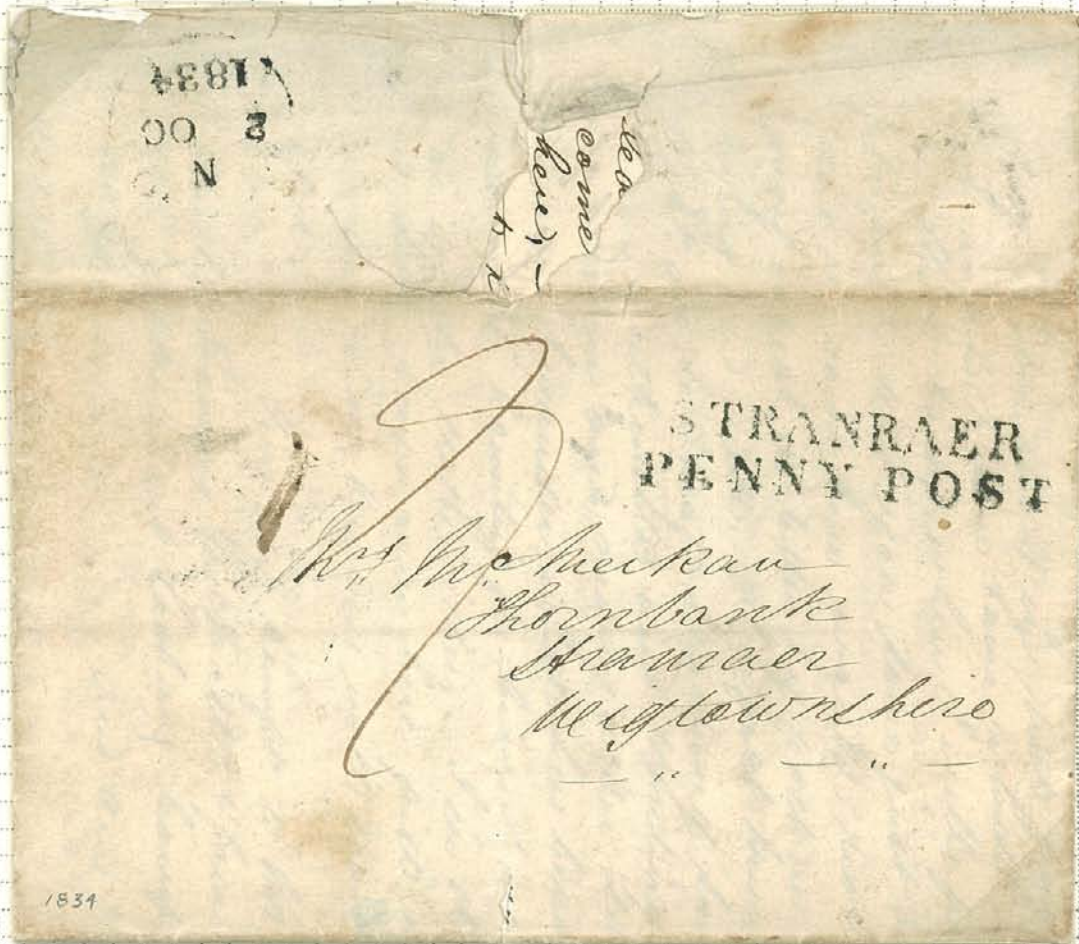 N
2 OC
1834
sea
come
here, –
STRANRAER
PENNY POST
Mrs McMeikan
Thornbank
Stranraer
Wigtownshire
1834